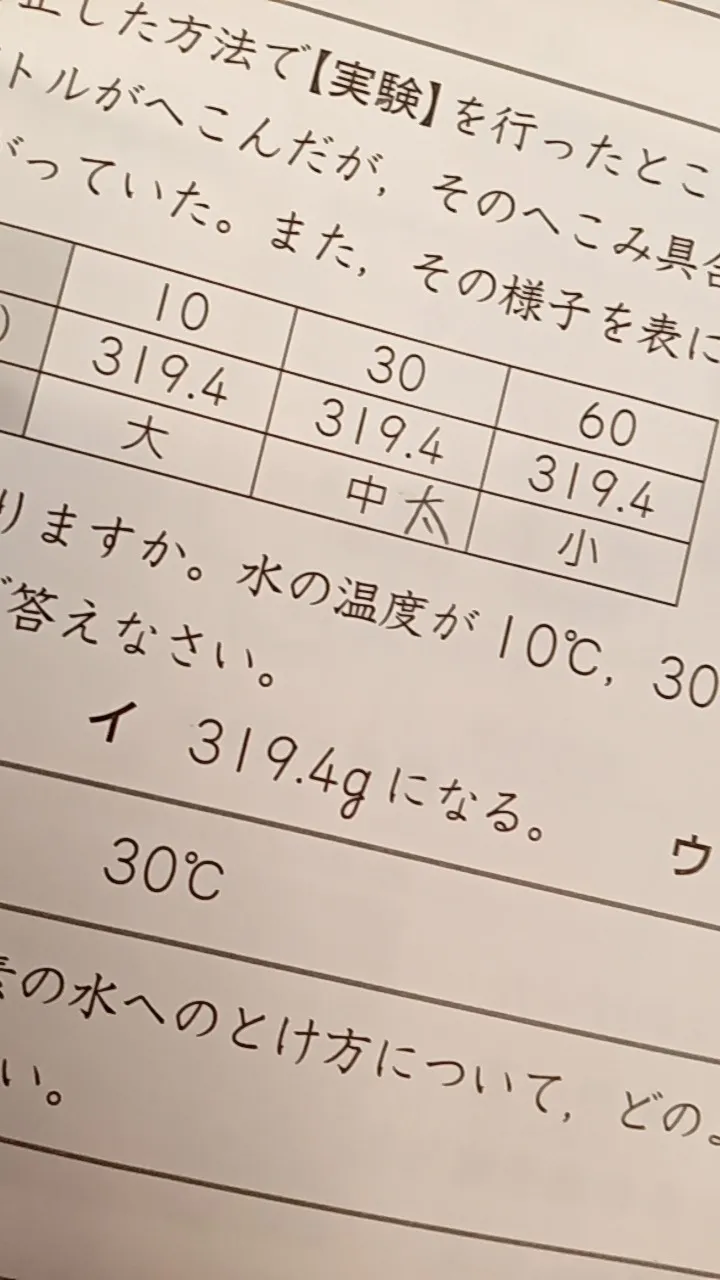 した方法で【実験】を行ったとこ
トルがへこんだが，そのへこみ具合
がっていた。また，その様子を表に
10 30 60
) 319.4 319.4 319.4
大 中 太 小
りますか。水の温度が10℃，30
で答えなさい。
イ 319.4gになる。 ウ
30℃
素の水へのとけ方について，どの
い。